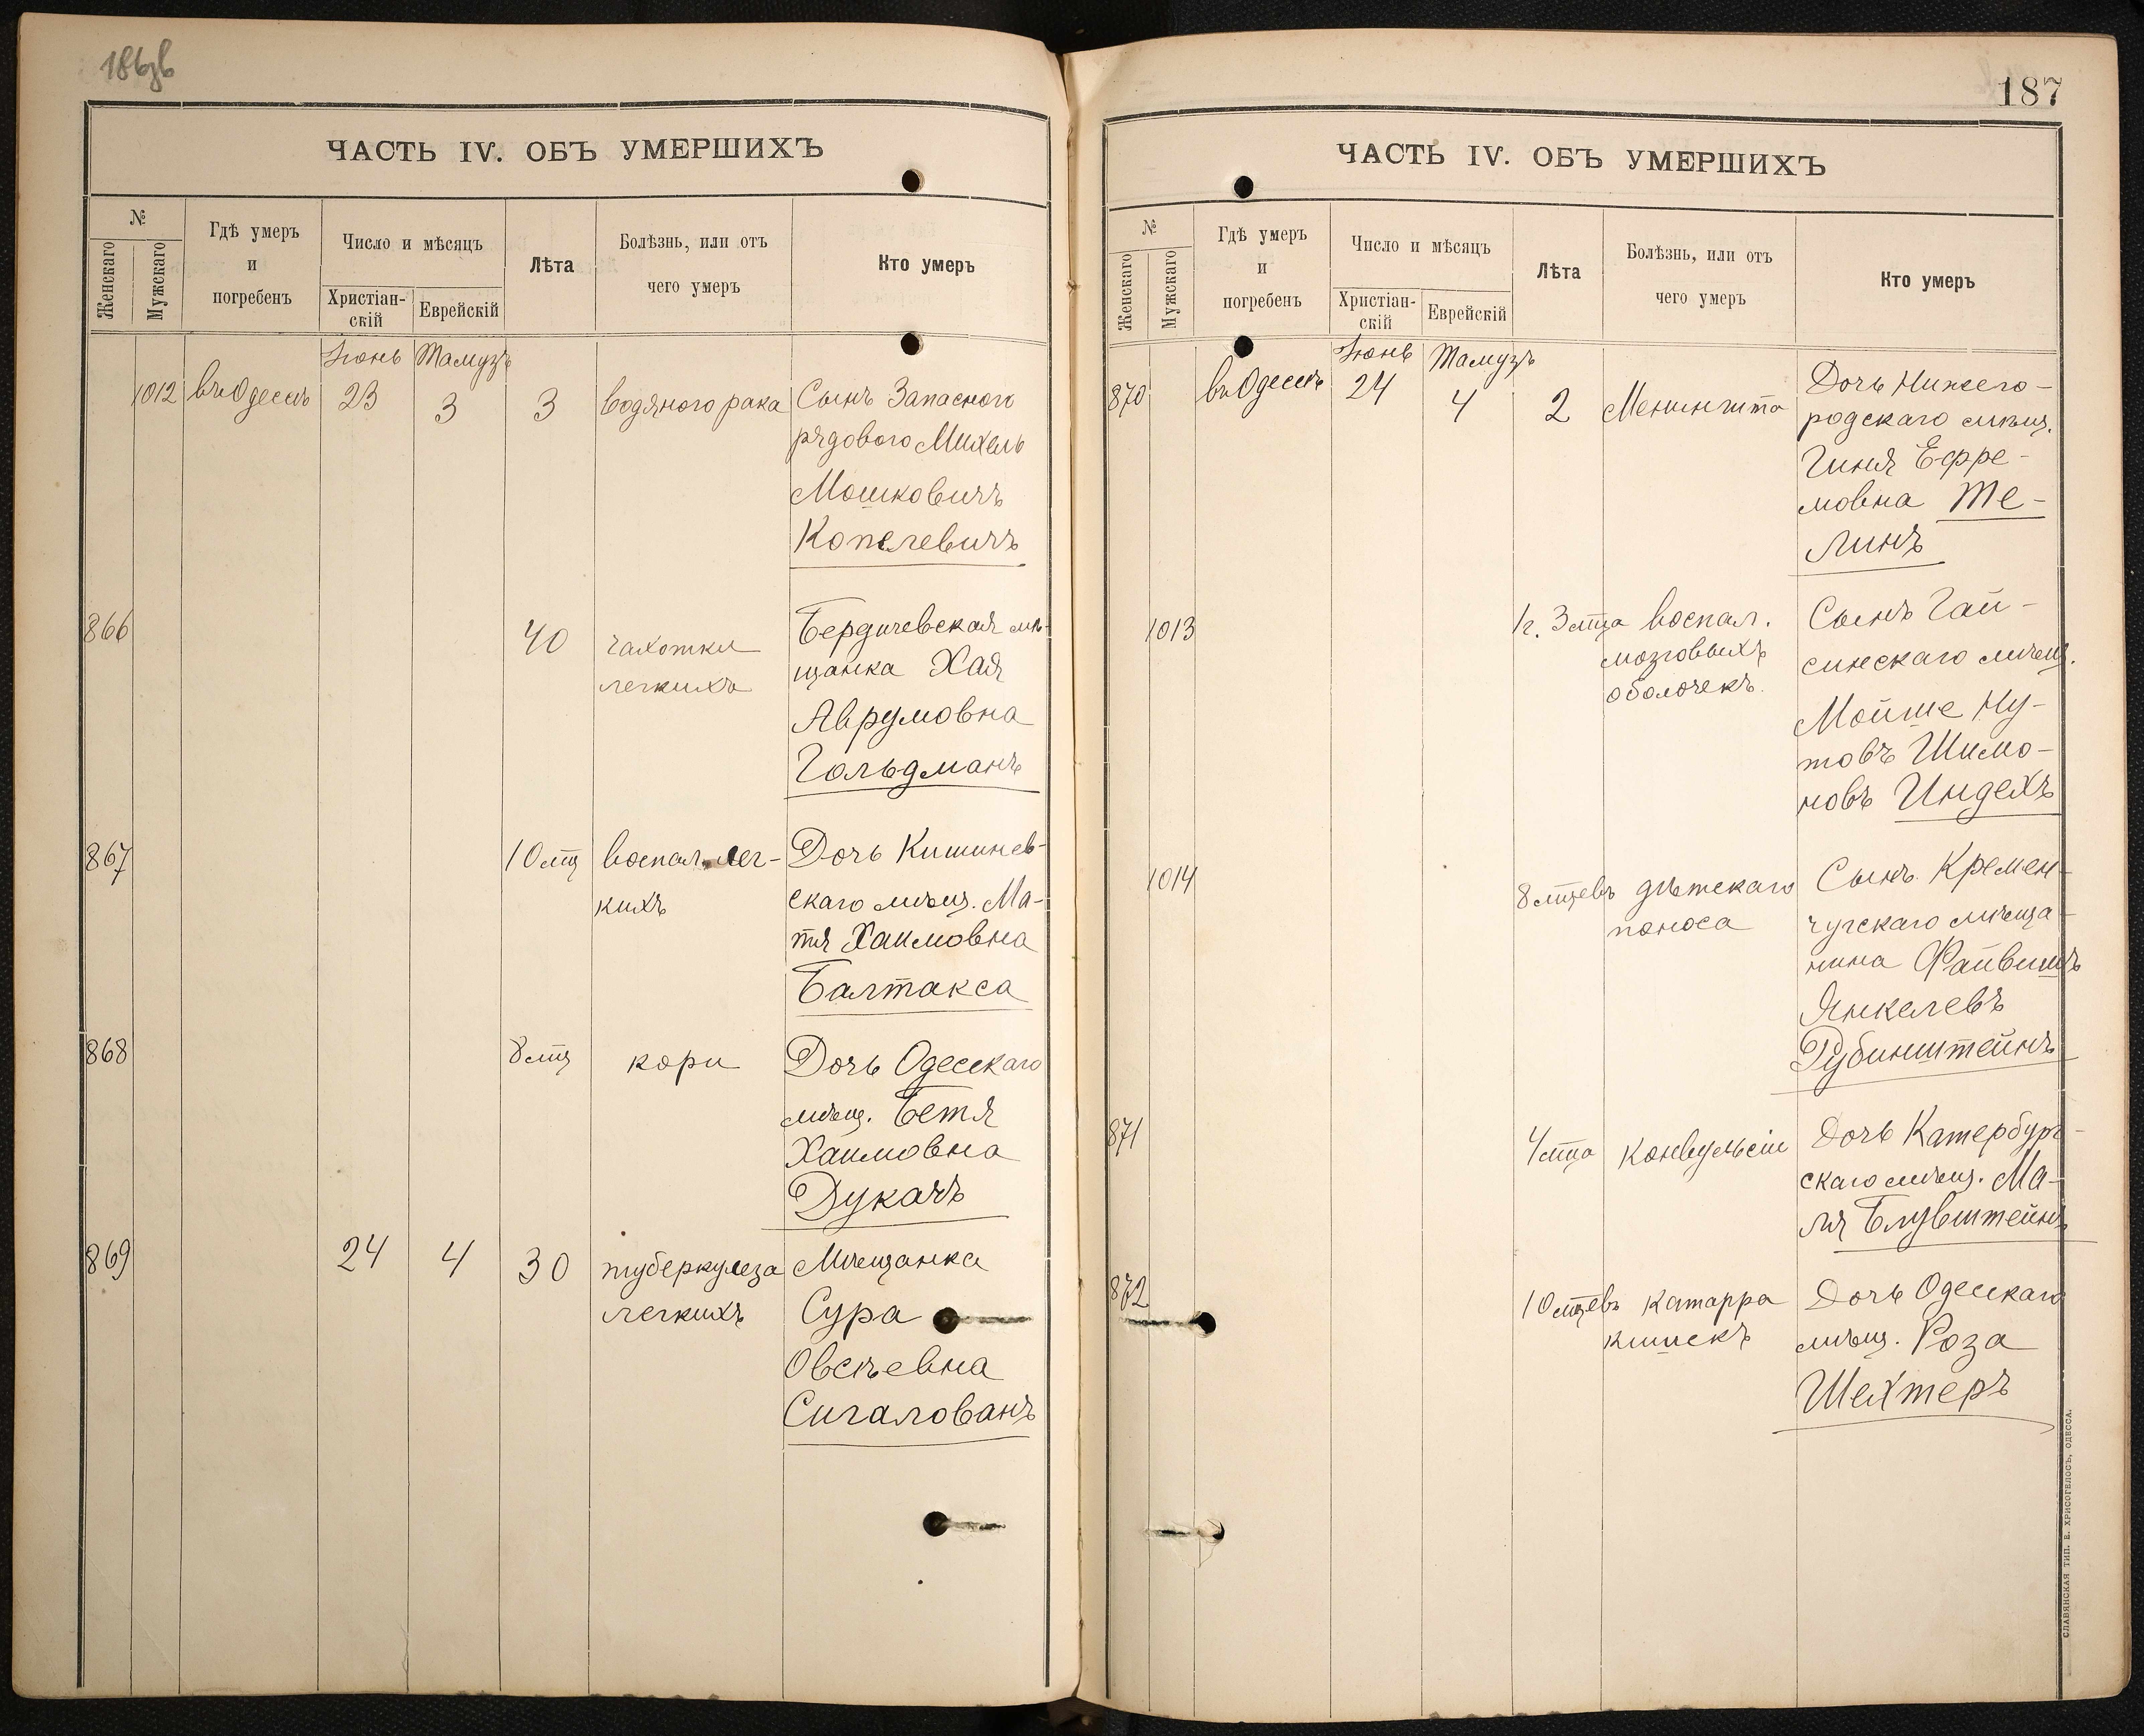 186зв
ЧАСТЬ IV. ОБЪ УМЕРШИХЪ
№
Женскаго
Мужскаго
Гдѣ умеръ
и
погребенъ
Число и мѣсяцъ
Христіан-
скій
Еврейскій
Лѣта
Болѣзнь, или отъ
чего умеръ
Кто умеръ
Іюнь Тамузъ
1012 въ Одессѣ 23 3 3 водяного рака Сынъ Запасного
рядового Михель
Мошковичъ
Копелевичъ
866 40 чахотки Бердичевская мѣ-
легкихъ щанка Хая
Аврумовна
Гольдманъ
867 10 мц воспал. лег- Дочь Кишинев-
кихъ скаго мѣщ. Ма-
тя Хаимовна
Балтакса
868 8 мц кори Дочь Одесскаго
мѣщ. Бетя
Хаимовна
Дукачъ
869 24 4 30 туберкулеза Мѣщанка
легкихъ Сура
Овсѣевна
Сигалованъ
187
ЧАСТЬ IV. ОБЪ УМЕРШИХЪ
№
Женскаго
Мужскаго
Гдѣ умеръ
и
погребенъ
Число и мѣсяцъ
Христіан-
скій
Еврейскій
Лѣта
Болѣзнь, или отъ
чего умеръ
Кто умеръ
Іюнь Тамузъ
870 въ Одессѣ 24 4 2 Менингита Дочь Нижего-
родскаго мѣщ.
Гиня Ефре-
мовна Те-
линъ
1013 1 г. 3 мца воспал. Сынъ Гай-
мозговыхъ синскаго мѣщ.
оболочекъ. Мойше Ну-
товъ Шимо-
новъ Индехъ
1014 8 мцевъ дѣтскаго Сынъ Кремен-
поноса чугскаго мѣща-
нина Файвишъ
Янкелевъ
Рубинштейнъ
871 4 мца конвульсіи Дочь Катербург-
скаго мѣщ. Ма-
ля Блувштейнъ
872 10 мцевъ катарра Дочь Одесскаго
кишекъ мѣщ. Роза
Шехтеръ
СЛАВЯНСКАЯ ТИП. Е. ХРИСОГЕЛОСЪ, ОДЕССА.